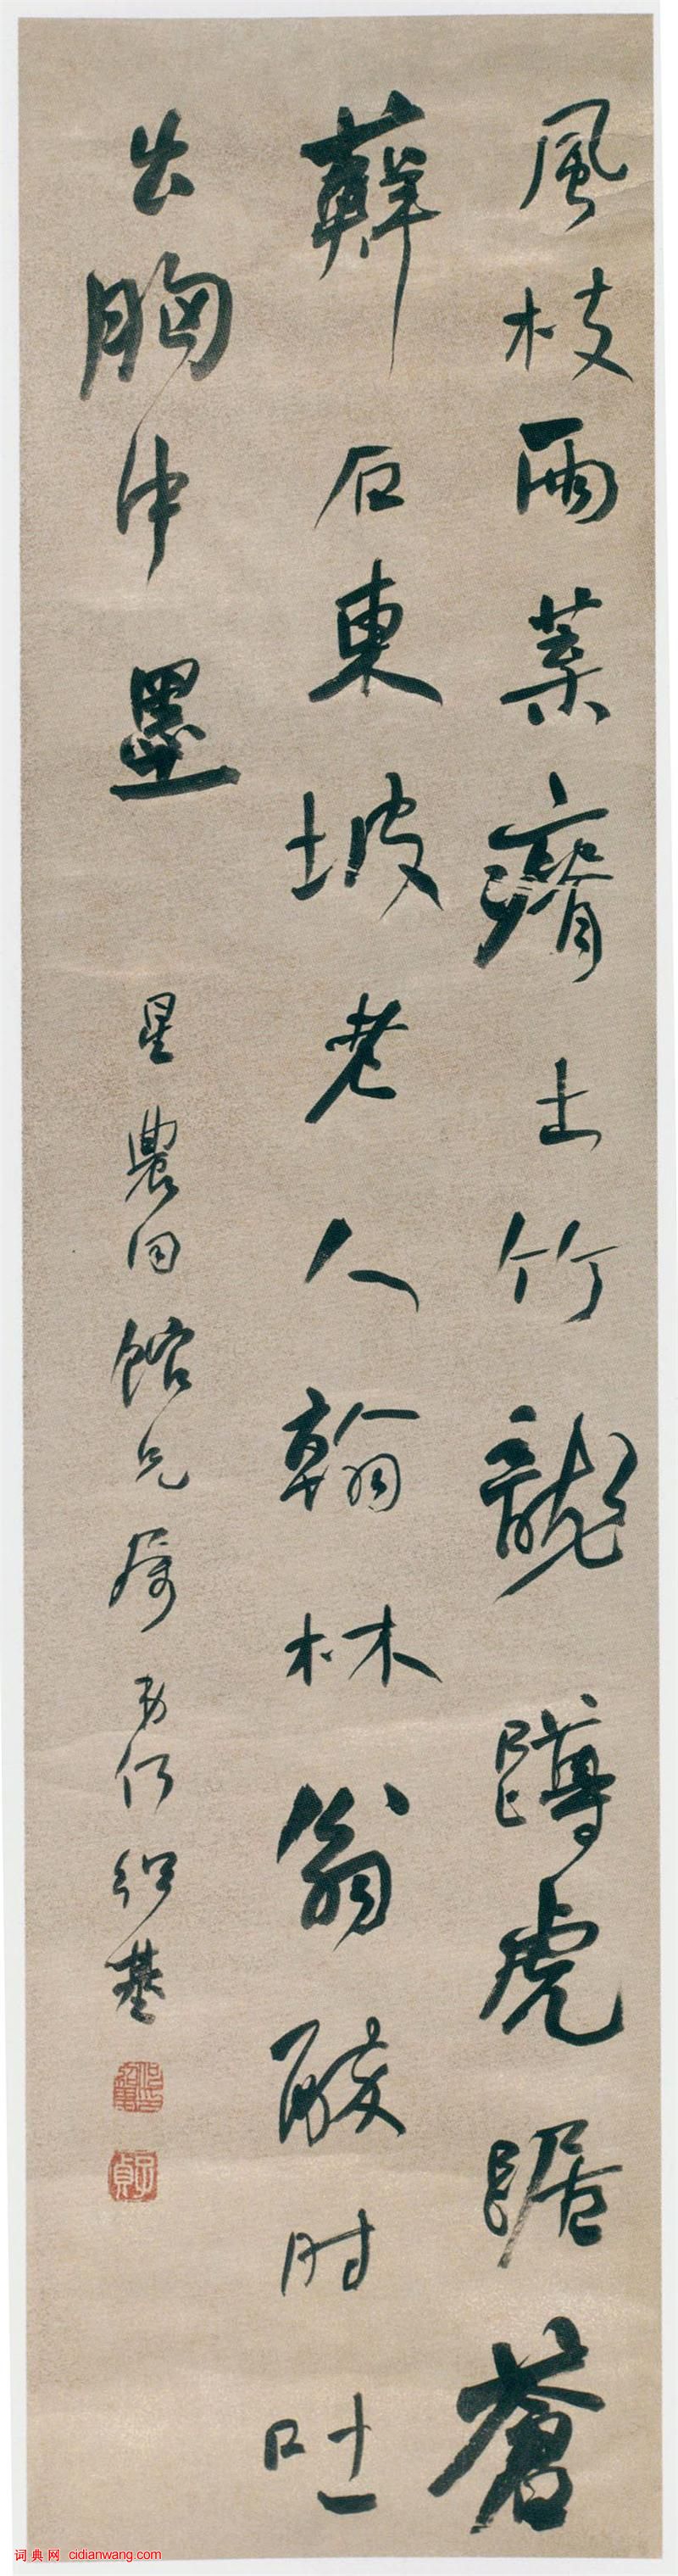 風枝雨葉瘠土竹龍蹲虎踞蒼
蘚石東坡老人翰林翁醉時吐
出胸中墨 星農同館兄属 弟何紹基
何紹基印
子貞
词典网 cidianwang.com